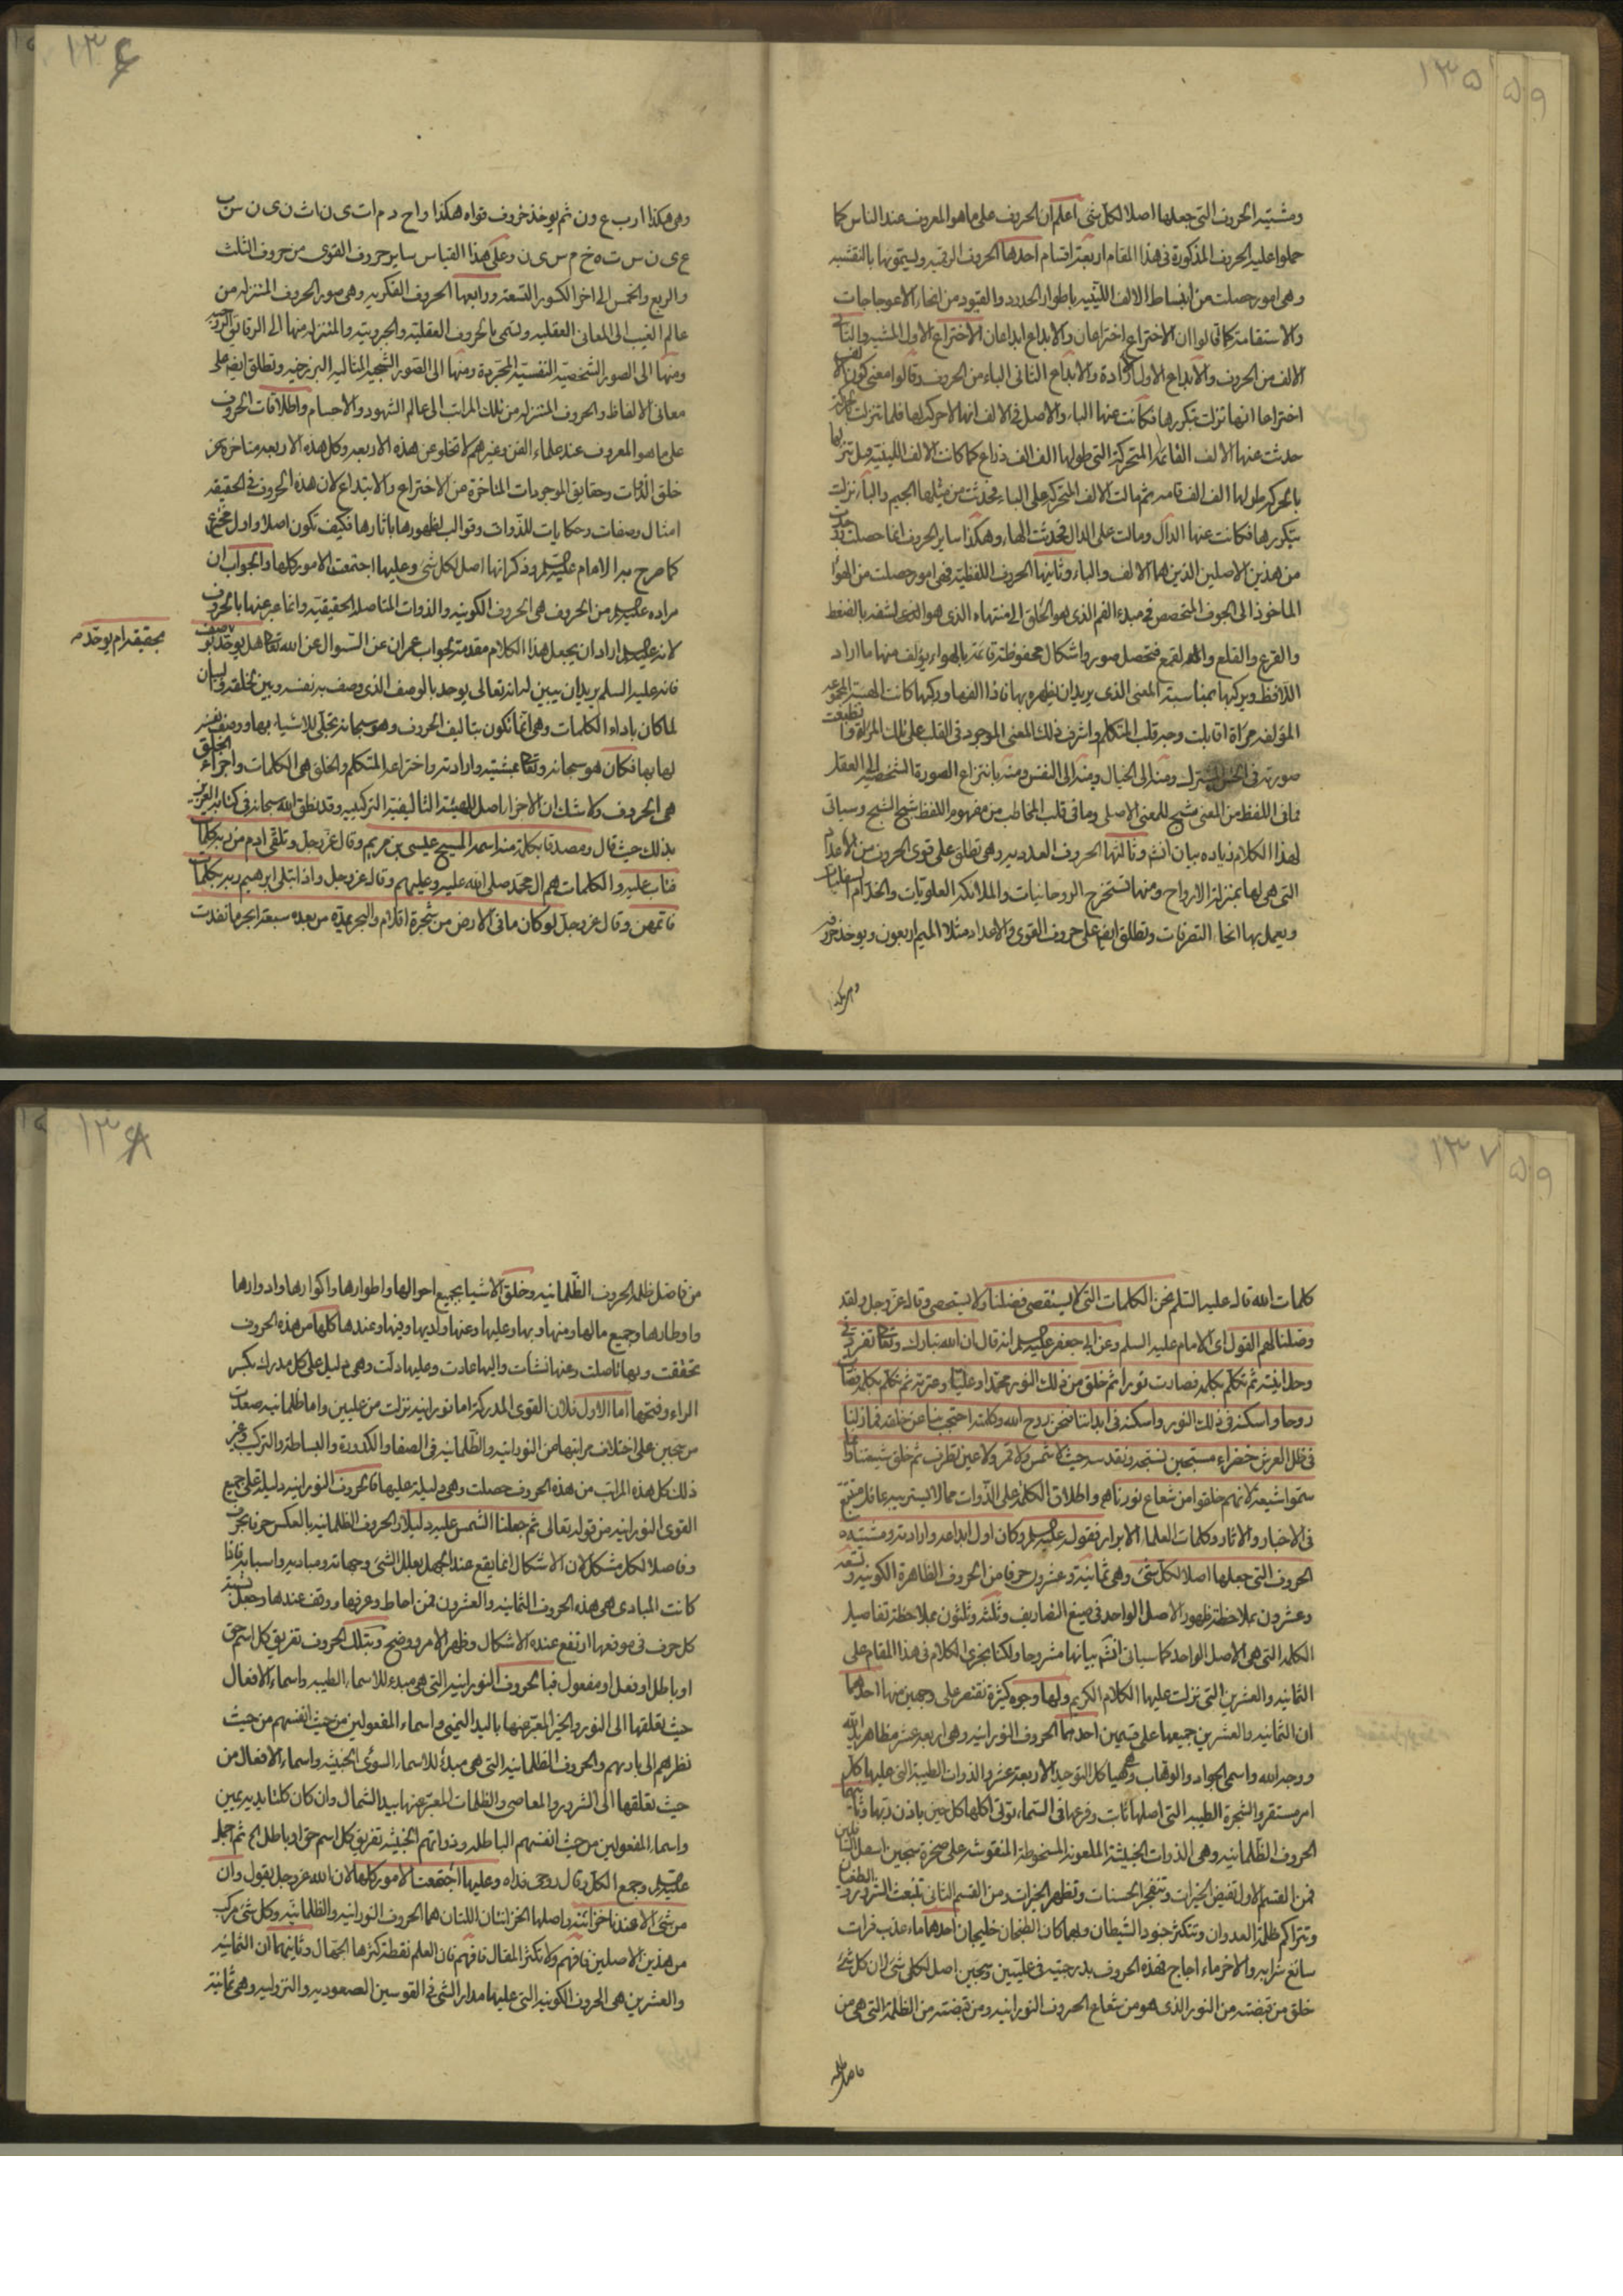 ١٣٥
٥٩
ومشيته الحروف التي جعلها اصلا لكل شئ اعلم ان الحروف على ما هو المعروف عند الناس كما
حملوا عليه الحروف المذكورة في هذا المقام اربعة اقسام احدها الحروف الرقمية ويسمونها بالنقشيه
وهي امور حصلت من انبساط الالف اللينيه باطوار الحدود والقيود من انحاء الاعوجاجات
والاستقامة كما قالوا ان الاختراع اختراعان والابداع ابداعان الاختراع الاول المشيه والثاني
الالف من الحروف والابداع الاول الارادة والابداع الثاني الباء من الحروف وقالوا معنى كون الالف
اختراعا انها نزلت بتكررها فكانت عنها الباء والاصل في الالف انها لا حركة لها فلما تنزلت بحركة
حدثت عنها الالف القائمة المتحركة التي طولها الف الف ذراع كما كانت الالف اللينيه قبل تنزلها
بالحركة طولها الف الف قامه ثم مالت الالف المتحركة على الباء فحدثت من ميلها الجيم والباء نزلت
بتكررها فكانت عنها الدال ومالت على الدال فحدثت الهاء وهكذا ساير الحروف انما حصلت وحدثت
من هذين الاصلين الذين هما الالف والباء وثانيها الحروف اللفظية فهي امور حصلت من الهواء
الماخوذ الى الجوف المتخصص في مبدء الفم الذي هو الحلق الى منتهاه الذي هو الشفه بالضغط
والقرع والقلع فتحصل صور واشكال محفوظة قائمة بالهواء يؤلف منها ما اراد
اللافظ ويركبها بمناسبة المعنى الذي يريد ان يظهره بها فاذا الفها وركبها كانت الهيئة المجموعه
المؤلفه مراة اقابلت وجه قلب المتكلم واشرف ذلك المعنى الموجود في القلب على تلك المراة وانطبعت
صورته في الحس المشترك ومنه الى الخيال ومنه الى النفس ومنه بانتزاع الصورة الشخصية الى العقل
فما في اللفظ من المعنى شبح للمعنى الاصلي وما في قلب المخاطب من مفهوم اللفظ شبح الشبح وسياتي
لهذا الكلام زياده بيان انشاء وثالثها الحروف العدديه وهي تطلق على قوى الحروف من الاعداد
التي هي لها بمنزلة الارواح ومنها تستخرج الروحانيات والملائكة العلويات والخدام السفليات
ويعمل بها انحاء التصرفات وتطلق ايضا على حروف القوى والاعداد مثلا الميم اربعون ويوخذ حروفه
وهي هكذا
١٣٦
وهي هكذا ا ر ب ع و ن ثم يوخذ حروف قواه هكذا و ا ح د م ا ت ى ن ا ث ن ى ن س ب
ع ى ن س ت ه خ م س ى ن وعلى هذا القياس ساير حروف القوى من حروف الثلث
والربع والخمس الى اخر الكسور التسعة ورابعها الحروف الفكرية وهي صور الحروف المنزلة من
عالم الغيب الى المعاني العقليه وتسمى بالحروف العقلية والجبروتيه والمتنزله منها الى الرقايق الروحيه
ومنها الى الصور الشخصية النفسية المجردة ومنها الى الصور الشبحيه المثاليه البرزخيه وتطلق ايضا على
معاني الالفاظ والحروف المتنزله من تلك المراتب الى عالم الشهود والاجسام واطلاقات الحروف
على ما هو المعروف عند علماء الفن وغيرهم لا تخلو عن هذه الاربعه وكل هذه الاربعه متاخره عن
خلق الذوات وحقايق الموجودات المتاخرة من الاختراع والابتداع لان هذه الحروف في الحقيقه
امثال وصفات وحكايات للذوات وقوالب لظهورها باثارها فكيف تكون اصلا واول مخترع
كما صرح به الامام عليه السلم وذكر انها اصل لكل شئ وعليها اجتمعت الامور كلها والجواب ان
مراده عليه السلم من الحروف هي الحروف الكونيه والذوات المتاصله الحقيقيه وانما عبر عنها بالحروف
لانه عليه السلم اراد ان يجعل هذا الكلام مقدمة لجواب عمران عن السوال عن الله تعالى هل يوحد بوصف
بحقيقه ام يوحد به
فانه عليه السلم يريد ان يبين له انه تعالى يوحد بالوصف الذي وصف به نفسه وبين لخلقه في لسان
لما كان باداء الكلمات وهي انما تكون بتاليف الحروف وهو سبحانه تجلى للاشياء بها ووصف نفسه
لها بها فكان هو سبحانه وتعالى بمشيته وارادته واختراعه المتكلم والخلق هي الكلمات واجزاء الخلق
هي الحروف ولا شك ان الاجزاء اصل للهيئة التاليفية التركيبيه وقد نطق الله سبحانه في كتابه العزيز
بذلك حيث قال ومصدقا بكلمة منه اسمه المسيح عيسى بن مريم وقال عز وجل وتلقى ادم من ربه كلمات
فتاب عليه والكلمات هم ال محمد صلى الله عليه وعليهم وقال عز وجل واذ ابتلى ابرهيم ربه بكلمات
فاتمهن وقال عز وجل لو كان ما في الارض من شجرة اقلام والبحر يمده من بعده سبعة ابحر ما نفدت
١٣٧
٥٩
كلمات الله قال عليه السلم نحن الكلمات التي لا يستقصى فضلنا ولا يستحصى وقال عز وجل ولقد
وصلنا لهم القول اى الامام عليه السلم وعن ابي جعفر عليه السلم انه قال ان الله تبارك وتعالى تفرد في
وحدانيته ثم تكلم بكلمة فصارت نورا ثم خلق من ذلك النور محمدا وعليا وعترته ثم تكلم بكلمة فصارت
روحا واسكنه في ذلك النور واسكنه في ابداننا فنحن روح الله وكلمته احتجب بنا عن خلقه فما زلنا
في ظل العرش خضراء مسبحين نسبحه ونقدسه حيث لا شمس ولا قمر ولا عين تطرف ثم خلق شيعتنا وانما
سموا شيعة لانهم خلقوا من شعاع نورنا هم واطلاق الكلمة على الذوات مما لا يستريب عاقل متتبع
في الاخبار والاثار وكلمات العلماء الابرار فقوله عليه السلم وكان اول ابداعه وارادته ومشيته
الحروف التي جعلها اصلا لكل شئ وهي ثمانية وعشرون حرفا من الحروف الظاهرة الكونيه وتسعه
وعشرون بملاحظة ظهور الاصل الواحد في صيغ التصاريف وثلثه وثلثون بملاحظة تفاصيل
الكلمه التي هي الاصل الواحد كما سياتي انشاء بيانها مشروحا ولكنا نجري الكلام في هذا المقام على
الثمانيه والعشرين التي نزلت عليها الكلام الكريم ولها وجوه كثيرة نقتصر على وجهين منها احدهما
ان الثمانيه والعشرين جميعها على قسمين احدهما الحروف النورانيه وهي اربعه عشر مظاهر يد الله
ووجه الله واسمي الجواد والوهاب وهياكل التوحيد الاربعة عشر والذوات الطيبة التي عليها كل
امر مستقر والشجرة الطيبه التي اصلها ثابت وفرعها في السماء تؤتي اكلها كل حين باذن ربها وثانيهما
الحروف الظلمانيه وهي الذوات الخبيثة الملعونه المسخوطة المنقوشه على صخرة سجين اسفل السافلين
فمن القسم الاول تفيض الخيرات وتنفجر الحسنات وتظهر الخيرات ومن القسم الثاني تنبعث الشرور والطغيان
وتتراكم ظلمة العدوان وتتكثر جنود الشيطان ولهما كان الطتجان خليجان احدهما ماء عذب فرات
سائغ شرابه والاخر ماء اجاج فهذه الحروف بدرجتيه في عليين وسجين اصل لكل شئ لان كل شئ
خلق من قبضته من النور الذي هو من شعاع الحروف النورانيه ومن قبضته من الظلمة التي هي من
فاضل ظلمه
١٣٨
من فاضل ظلمه الحروف الظلمانيه وخلق الاشيا بجميع احوالها واطوارها واكوارها وادوارها
واوطارها وجميع مالها ومنها وبها وعليها وعنها ولديها وفيها وعندها كلها من هذه الحروف
تحققت وبها تاصلت وعنها نشات واليها عادت وعليها دلت وهي دليل على كل مدرك بكسر
الراء وفتحها اما الاول فلان القوى المدركة اما نورانيه نزلت من عليين واما ظلمانيه صعدت
من سجين على اختلاف مراتبها من النورانيه والظلمانيه في الصفا والكدورة والبساطة والتركيب وغير
ذلك كل هذه المراتب من هذه الحروف حصلت وهي دليلة عليها فالحروف النورانيه دليلة على جميع
القوى النورانيه من قوله تعالى ثم جعلنا الشمس عليه دليلا والحروف الظلمانيه بالعكس حرفا بحرف
وفاصلا لكل مشكل لان الاشكال انما يقع عند الجهل بعلل الشئ وجهاته ومباديه واسبابه فاذا
كانت المبادى هي هذه الحروف الثمانيه والعشرون فمن احاط وعرفها ووقف عندها وجعل نسبة
كل حرف في موقعها ارتفع عنده الاشكال وظهر الامر ووضح وبتلك الحروف تفريق كل اسم حق
او باطل او فعل او مفعول فبالحروف النورانيه التي هي مبدء للاسماء الطيبه واسماء الافعال
حيث تعلقها الى النور والخير المعبر عنها باليد اليمنى واسماء المفعولين من حيث انفسهم من حيث
نظرهم الى باريهم والحروف الظلمانيه التي هي مبدأ للاسماء السوأى الخبيثه واسماء الافعال من
حيث تعلقها الى الشرور والمعاصي والظلمات المعبر عنها بيد الشمال وان كان كلتا يديه يمين
واسماء المفعولين من حيث انفسهم الباطله وذواتهم الخبيثه تفريق كل اسم حق او باطل الخ ثم اجمل
عليه السلم وجمع الكل وقال روحي فداه وعليها اجتمعت الامور كلها لان الله عز وجل يقول وان
من شئ الا عندنا خزائنه واصلها الخزانتان اللتان هما الحروف النورانيه والظلمانيه وكل شئ مركب
من هذين الاصلين فافهم ولا تكثر المقال فافهم فان العلم نقطة كثرها الجهال وثانيهما ان الثمانيه
والعشرين هي الحروف الكونيه التي عليها مدار الشئ في القوسين الصعوديه والنزوليه وهي ثمانية